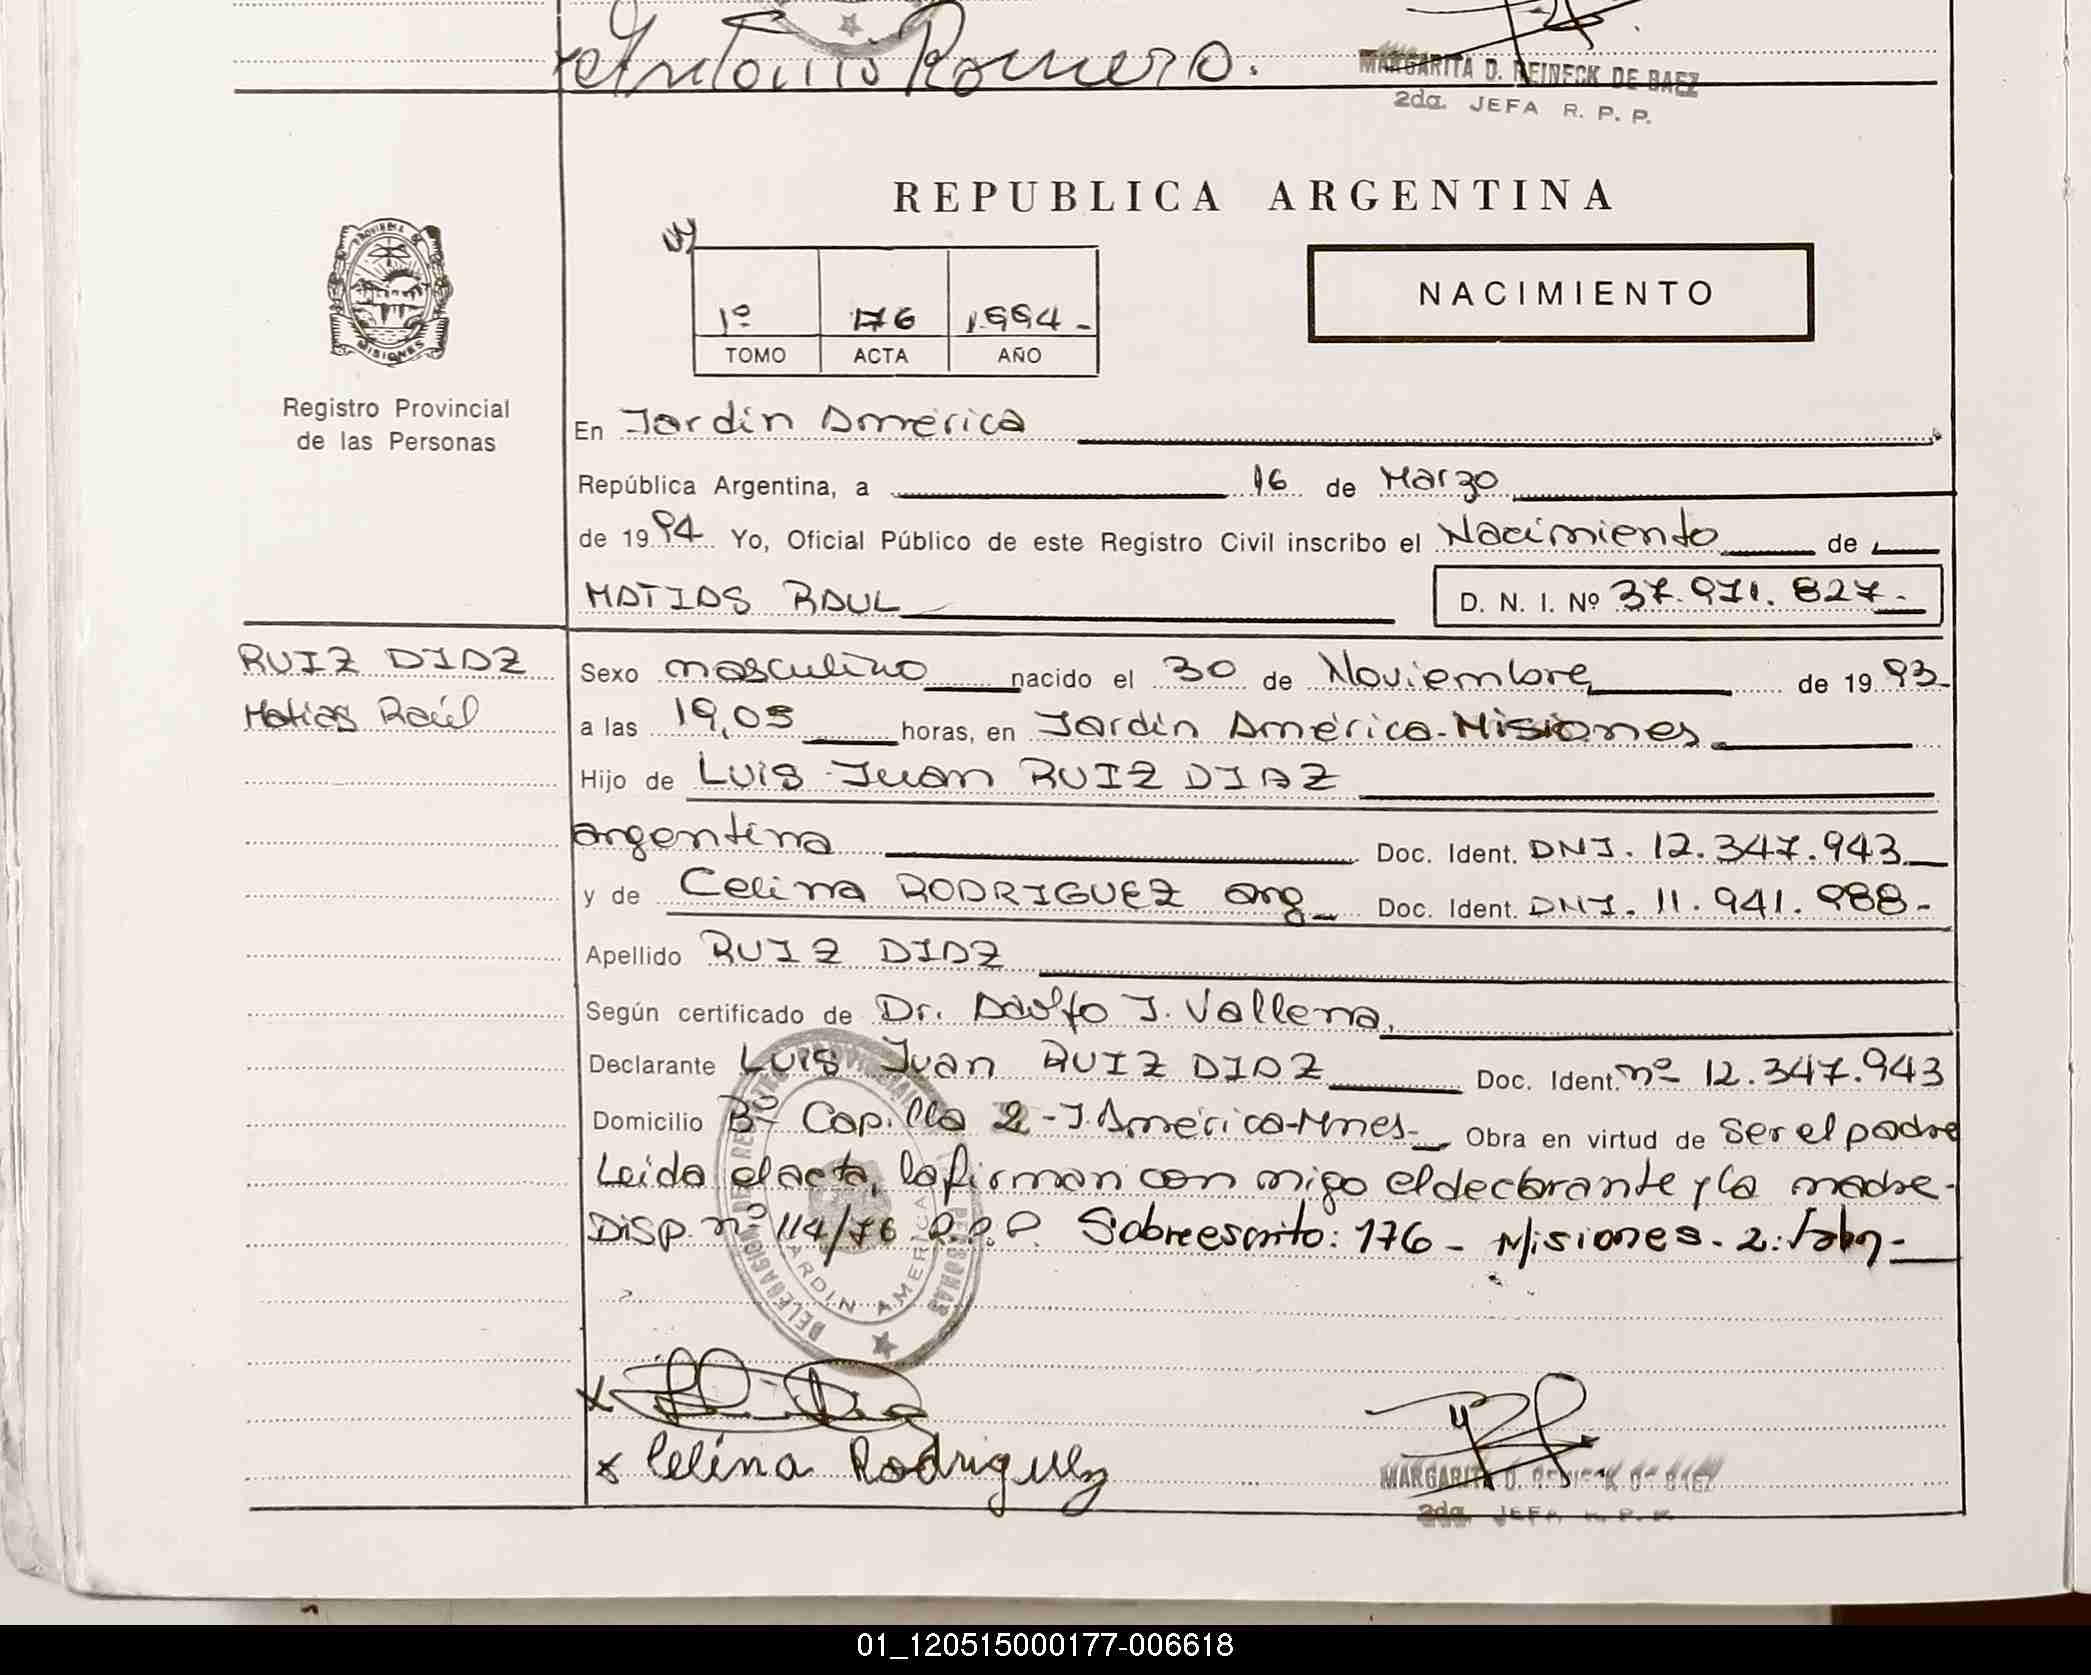 Antonio Romero.
MARGARITA D. REINECK DE BAEZ
2da. JEFA R. P. P.
REPUBLICA ARGENTINA
PROVINCIA DE
MISIONES
Registro Provincial
de las Personas
1º 176 1.994-
TOMO ACTA AÑO
NACIMIENTO
En Jardín América
República Argentina, a 16 de Marzo
de 1994 Yo, Oficial Público de este Registro Civil inscribo el Nacimiento de
MATIAS RAUL D. N. I. Nº 37.971.827.-
RUIZ DIAZ
Matias Raúl
Sexo masculino nacido el 30 de Noviembre de 1993-
a las 19,05 horas, en Jardín América-Misiones
Hijo de Luis Juan RUIZ DIAZ
argentina Doc. Ident. DNI. 12.347.943
y de Celina RODRIGUEZ arg Doc. Ident. DNI. 11.941.988-
Apellido RUIZ DIAZ
Según certificado de Dr. Adolfo J. Vallena
Declarante Luis Juan RUIZ DIAZ Doc. Ident. nº 12.347.943
Domicilio Bº Capilla 2-J.América-Mnes- Obra en virtud de ser el padre
Leida el acta, la firman con migo el declarante y la madre-
Disp. nº 114/76 R.P.P. Sobreescrito: 176- Misiones. 2:
JARDIN AMERICA
Celina Rodriguez
MARGARITA D. REINECK DE BAEZ
2da. JEFA R. P. P.
01_120515000177-006618